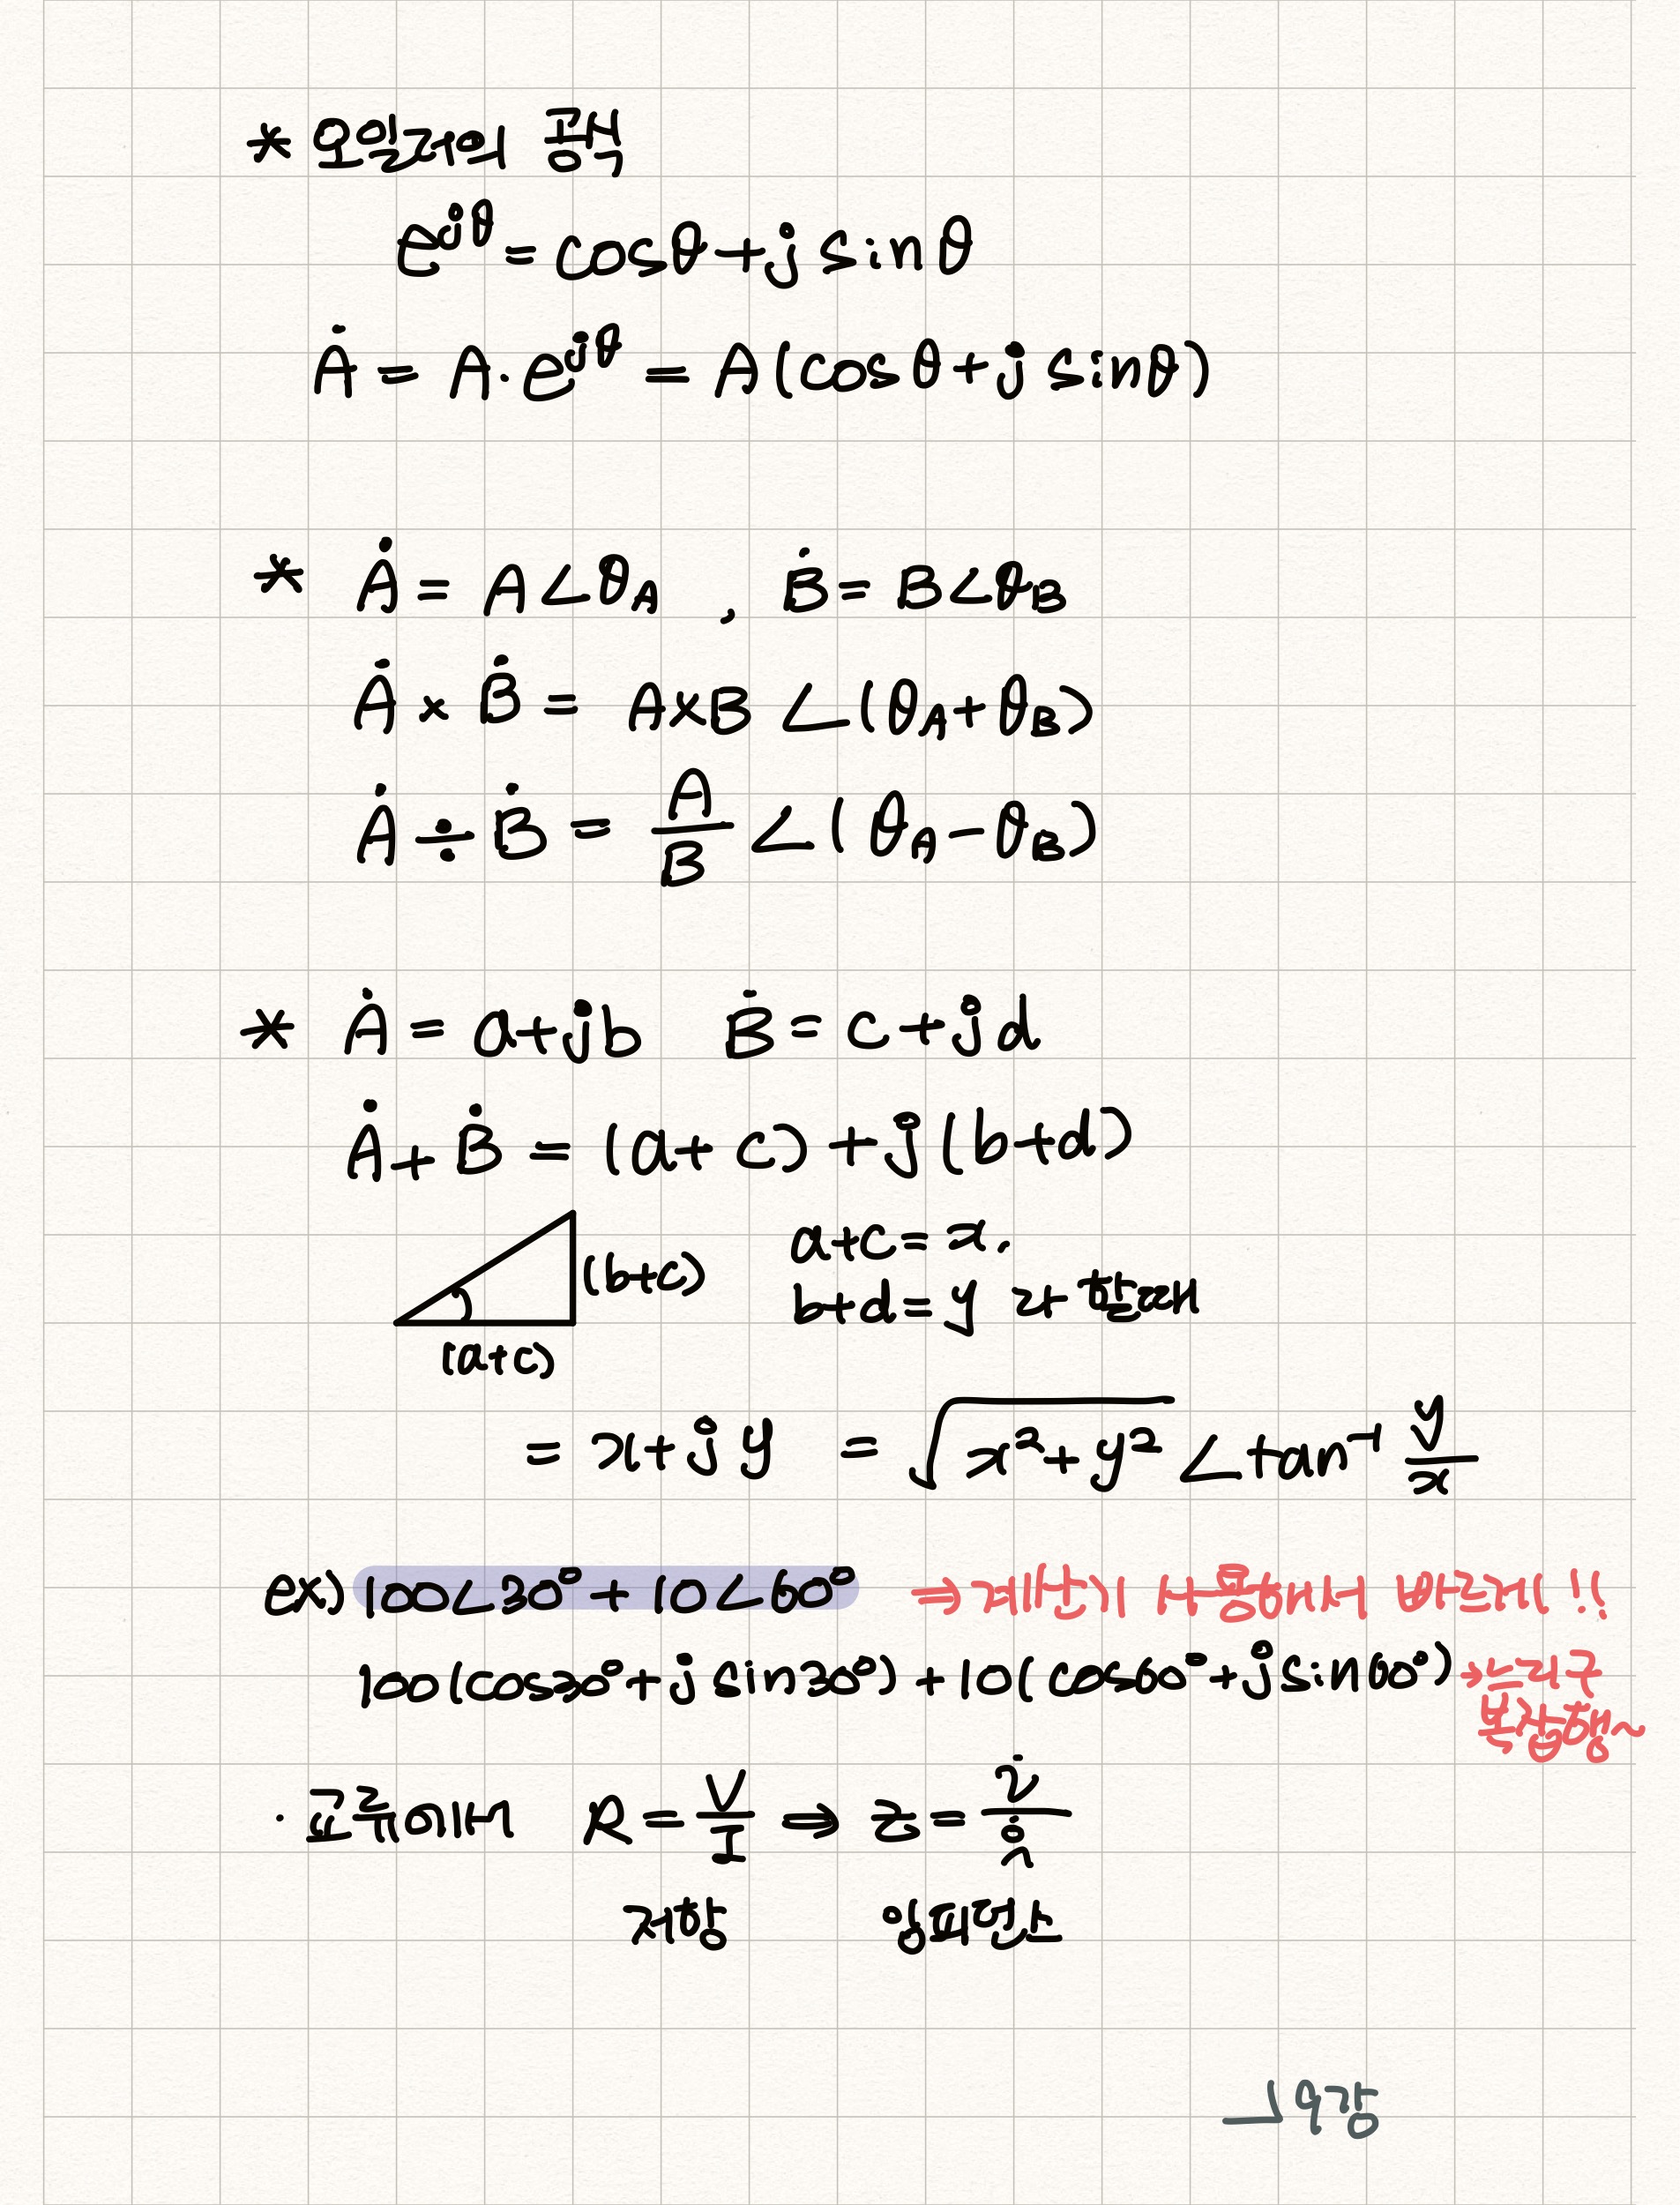 * 오일러의 공식
e^jθ = cosθ + j sinθ
Ȧ = A·e^jθ = A(cosθ + j sinθ)
* Ȧ = A∠θA , Ḃ = B∠θB
Ȧ × Ḃ = A×B ∠(θA+θB)
Ȧ ÷ Ḃ = A/B ∠(θA-θB)
* Ȧ = a+jb Ḃ = c+jd
Ȧ + Ḃ = (a+c) + j(b+d)
(b+c)
(a+c)
a+c = x.
b+d = y 라 할때
= x+jy = √(x²+y²) ∠tan⁻¹ y/x
ex) 100∠30° + 10∠60° ⇒ 계산기 사용해서 빠르게!!
100(cos30°+j sin30°) + 10(cos60°+j sin60°) → 느리구
복잡행~
· 교류에서 R = V/I ⇒ Z = v̇/i̇
저항 임피던스
_| 9강